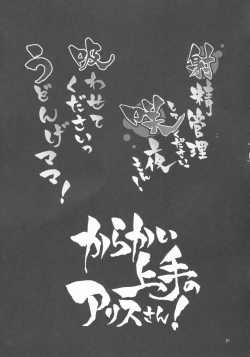 射精管理
してください
咲夜さん!
吸わせて
くださいっ
うどんげママ!
からかい
上手の
アリスさん!